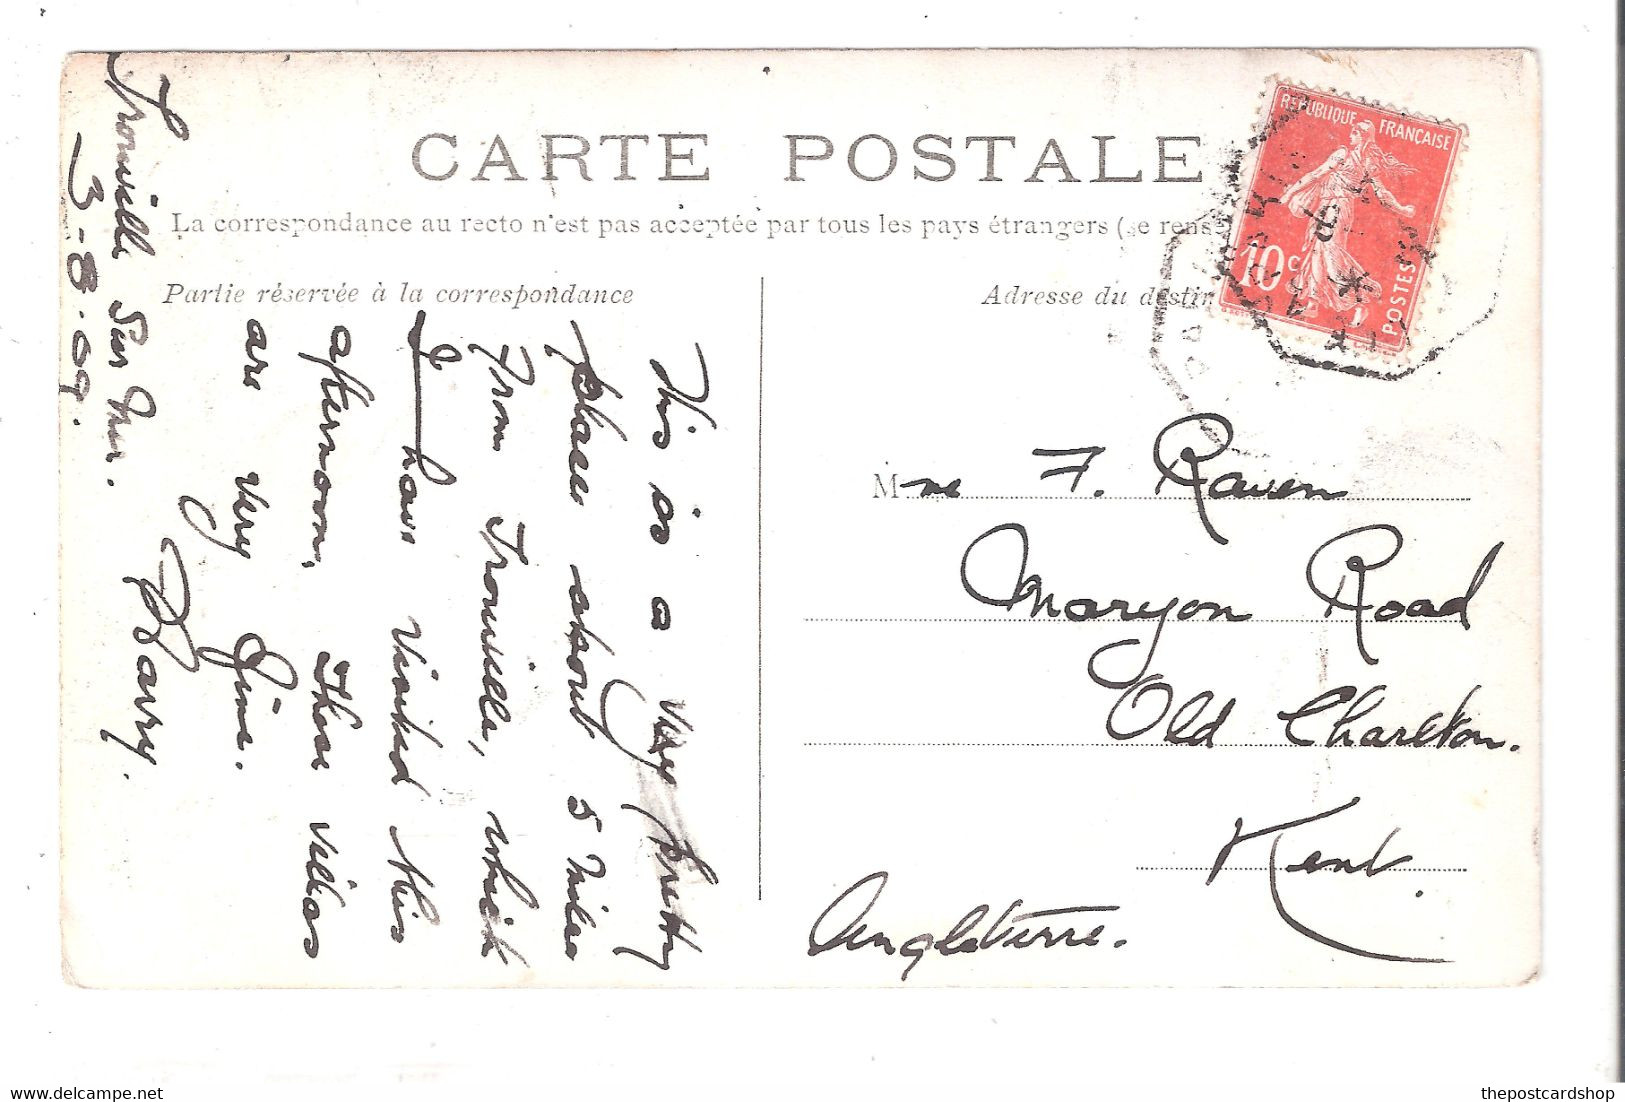 CARTE POSTALE
La correspondance au recto n'est pas acceptée par tous les pays étrangers (se rense
Partie réservée à la correspondance
Adresse du destin
REPUBLIQUE FRANÇAISE
10 c
POSTES
Trouville Sur Mer.
3-8.09.
This is a very pretty
place about 5 miles
from Trouville, which
I have visited this
afternoon, these villas
are very fine.
Harry.
Mme F. Raven
Maryon Road
Old Charlton.
Kent.
Angleterre.
thepostcardshop